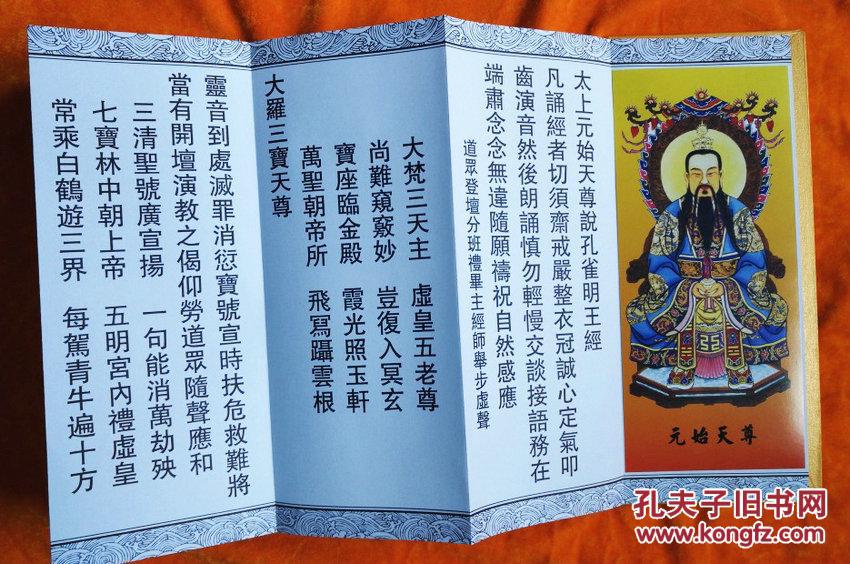 元始天尊
太上元始天尊說孔雀明王經
凡誦經者切須齋戒嚴整衣冠誠心定氣叩
齒演音然後朗誦慎勿輕慢交談接語務在
端肅念念無違隨願禱祝自然感應
道眾登壇分班禮畢主經師舉步虛聲
大梵三天主 虛皇五老尊
尚難窺竅妙 豈復入冥玄
寶座臨金殿 霞光照玉軒
萬聖朝帝所 飛舄躡雲根
大羅三寶天尊
靈音到處滅罪消愆寶號宣時扶危救難將
當有開壇演教之偈仰勞道眾隨聲應和
三清聖號廣宣揚 一句能消萬劫殃
七寶林中朝上帝 五明宮內禮虛皇
常乘白鶴遊三界 每駕青牛遍十方
孔夫子旧书网
www.kongfz.com